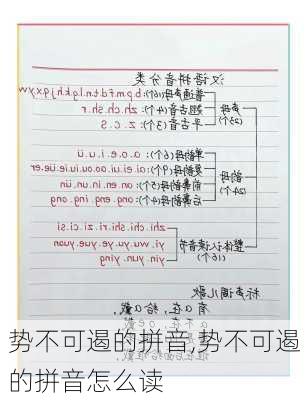 汉语拼音分类
普通声母(16个):b.p.m.f.d.t.n.l.g.k.h.j.q.x.y.w
声母
(23个)
翘舌音(4个):zh.ch.sh.r
平舌音(3个):z.c.s
单韵母(6个):a.o.e.i.u.ü
复韵母(9个):ai.ei.ui.ao.ou.iu.ie.üe.er
韵母
(24个)
前鼻韵母(5个):an.en.in.un.ün
后鼻韵母(4个):ang.eng.ing.ong
zhi.chi.shi.ri.zi.ci.si
整体认读音节
(16个)
yi.wu.yu.ye.yue.yuan
yin.yun.ying
标声调儿歌
有a在,给a戴,
势不可遏的拼音,势不可遏
的拼音怎么读